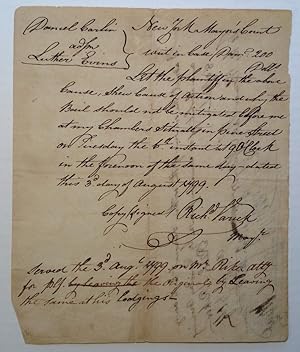 Daniel Carlin
ads
Luther Evins
New York Mayors Court
writ in Case Dam. 200
Dolls
Let the plaintiff in the above
Cause, Shew Cause of action and why the
Bail should not be mitigated before me
at my Chambers in pine Street
on Tuesday the 6th instant at 9 OClock
in the forenoon of the same day - dated
this 3d day of August 1799.
Copy signed Richd Varick
Mayr.
Served the 3d. Augt. 1799 on Mr. Riker atty
for plf. by leaving the the Original by Leaving
the same at his lodgings -